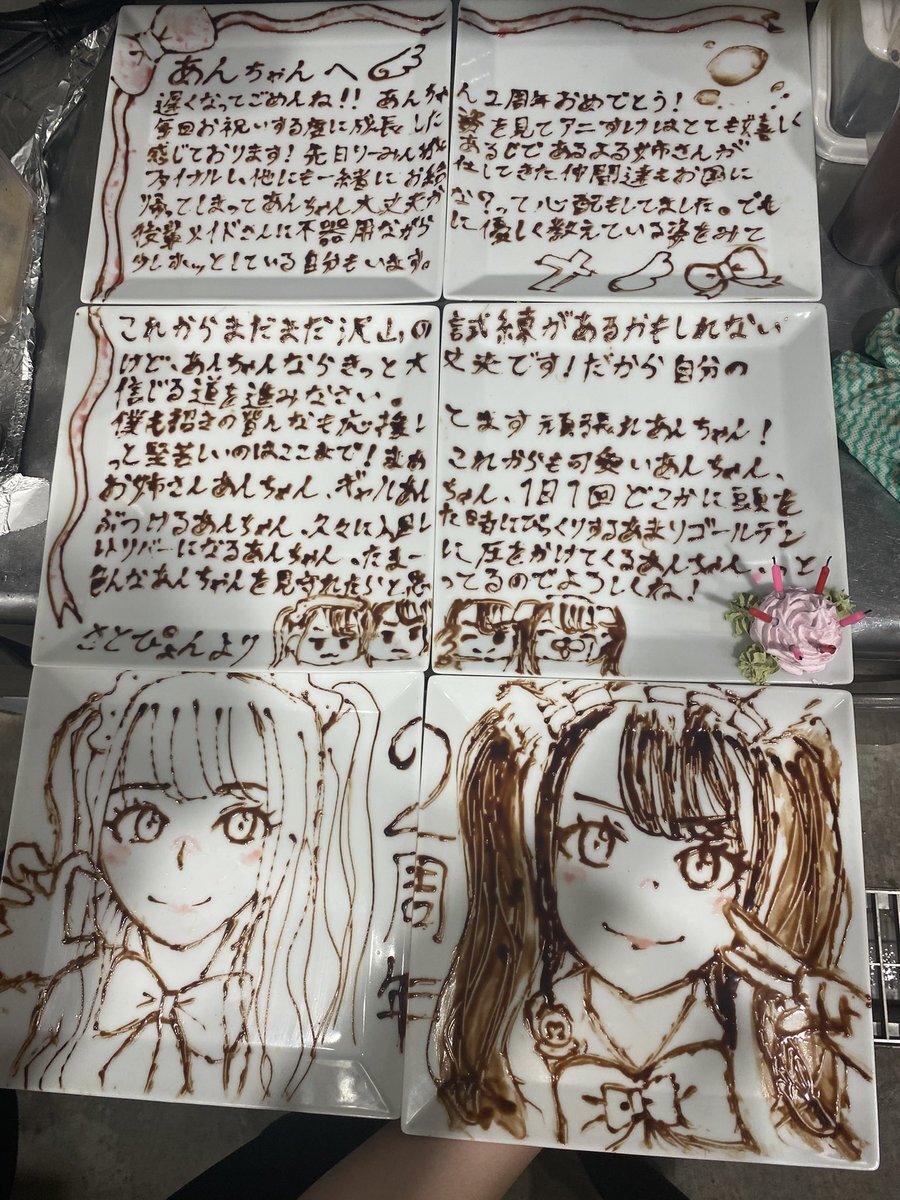 あんちゃんへ
遅くなってごめんね!! あんちゃん2周年おめでとう!
毎回お祝いする度に成長した姿を見てアニすけはとても嬉しく
感じております! 先日りーみんが あるじであるよる姉さんが
ファイナルし、他にも一緒にお給仕してきた仲間達もお国に
帰ってしまってあんちゃん大丈夫かな?って心配もしてました。でも
後輩メイドさんに不器用ながらに優しく教えている姿をみて
少しホッとしている自分もいます。
これからまだまだ沢山の試練があるかもしれない
けど、あんちゃんならきっと大丈夫です!だから自分の
信じる道を進みなさい。
僕も招きの皆んなも応援してます頑張れあんちゃん!
っと堅苦しいのはここまで!まぁこれからも可愛いあんちゃん、
お姉さんあんちゃん、ギャルあんちゃん、1日1回どこかに頭を
ぶつけるあんちゃん、久々に入国した時にびっくりするあまりゴールデン
リバーになるあんちゃん、たまーに圧をかけてくるあんちゃん、
んなあんちゃんを見守れたらと思ってるのでよろしくね!
さとぴょんより
2周年